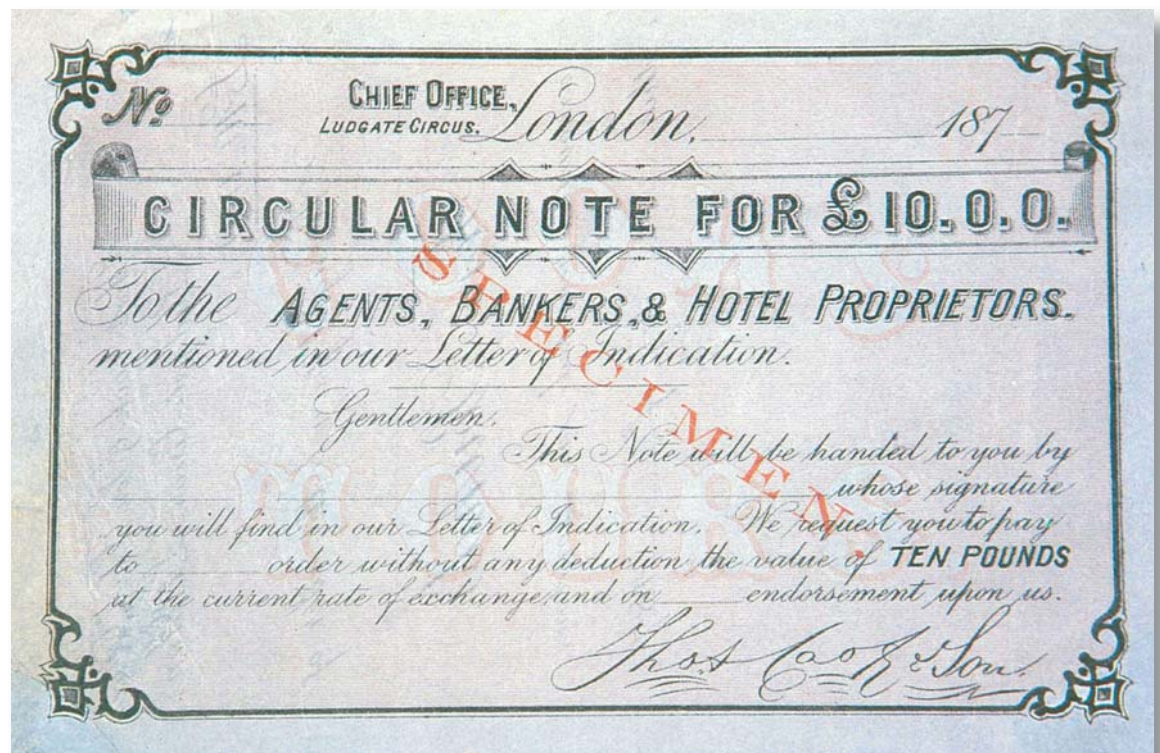 No
CHIEF OFFICE,
LUDGATE CIRCUS. London, 187
CIRCULAR NOTE FOR £10.0.0.
To the AGENTS, BANKERS, & HOTEL PROPRIETORS.
mentioned in our Letter of Indication.
Gentlemen.
This Note will be handed to you by
whose signature
you will find in our Letter of Indication. We request you to pay
to order without any deduction the value of TEN POUNDS
at the current rate of exchange, and on endorsement upon us.
Thos Cook & Son.
SPECIMEN.
COOK'S
TOURS